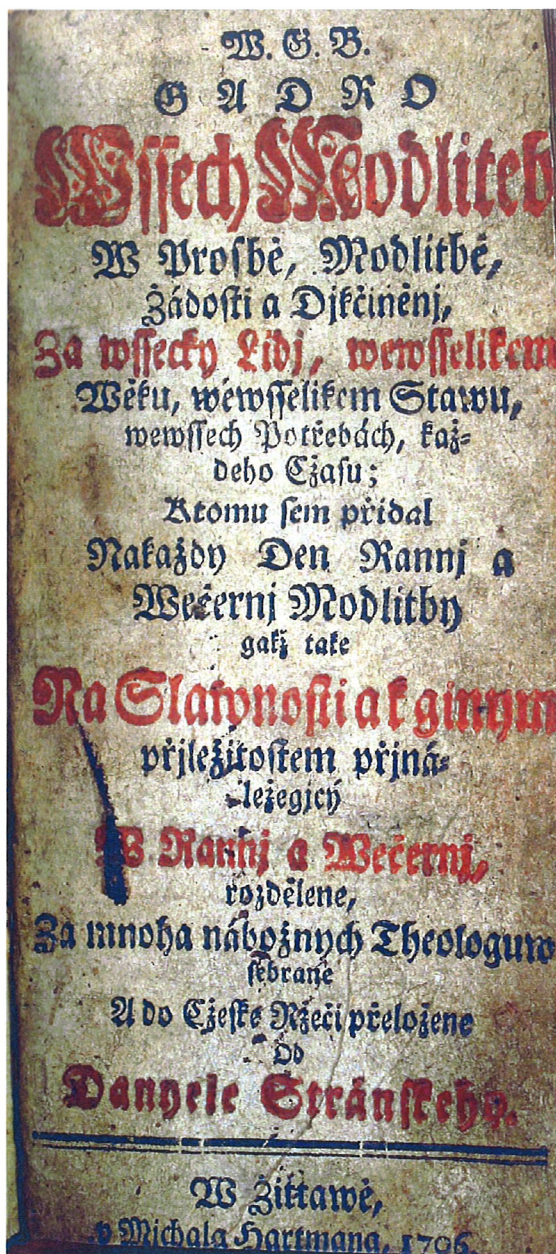 W. G. B.
GADRO
Wssech Modliteb
W Prosbě, Modlitbě,
Žádosti a Djkčiněnj,
Za wssecky Lidj, wewsselikem
Wěku, wewsselikem Stawu,
wewssech Potřebách, kaž-
deho Cžasu;
Ktomu sem přidal
Nakaždy Den Rannj a
Wečernj Modlitby
gakž take
Na Slawnosti a k ginym
přjležitostem přjná-
ležegicý
W Rannj a Wečernj,
rozdělene,
Za mnoha nábožnych Theologuw
sebrane
A do Cžeske Ržeči přeložene
Od
Danyele Stránskeho.
W Žittawě,
v Michala Hartmana, 1706